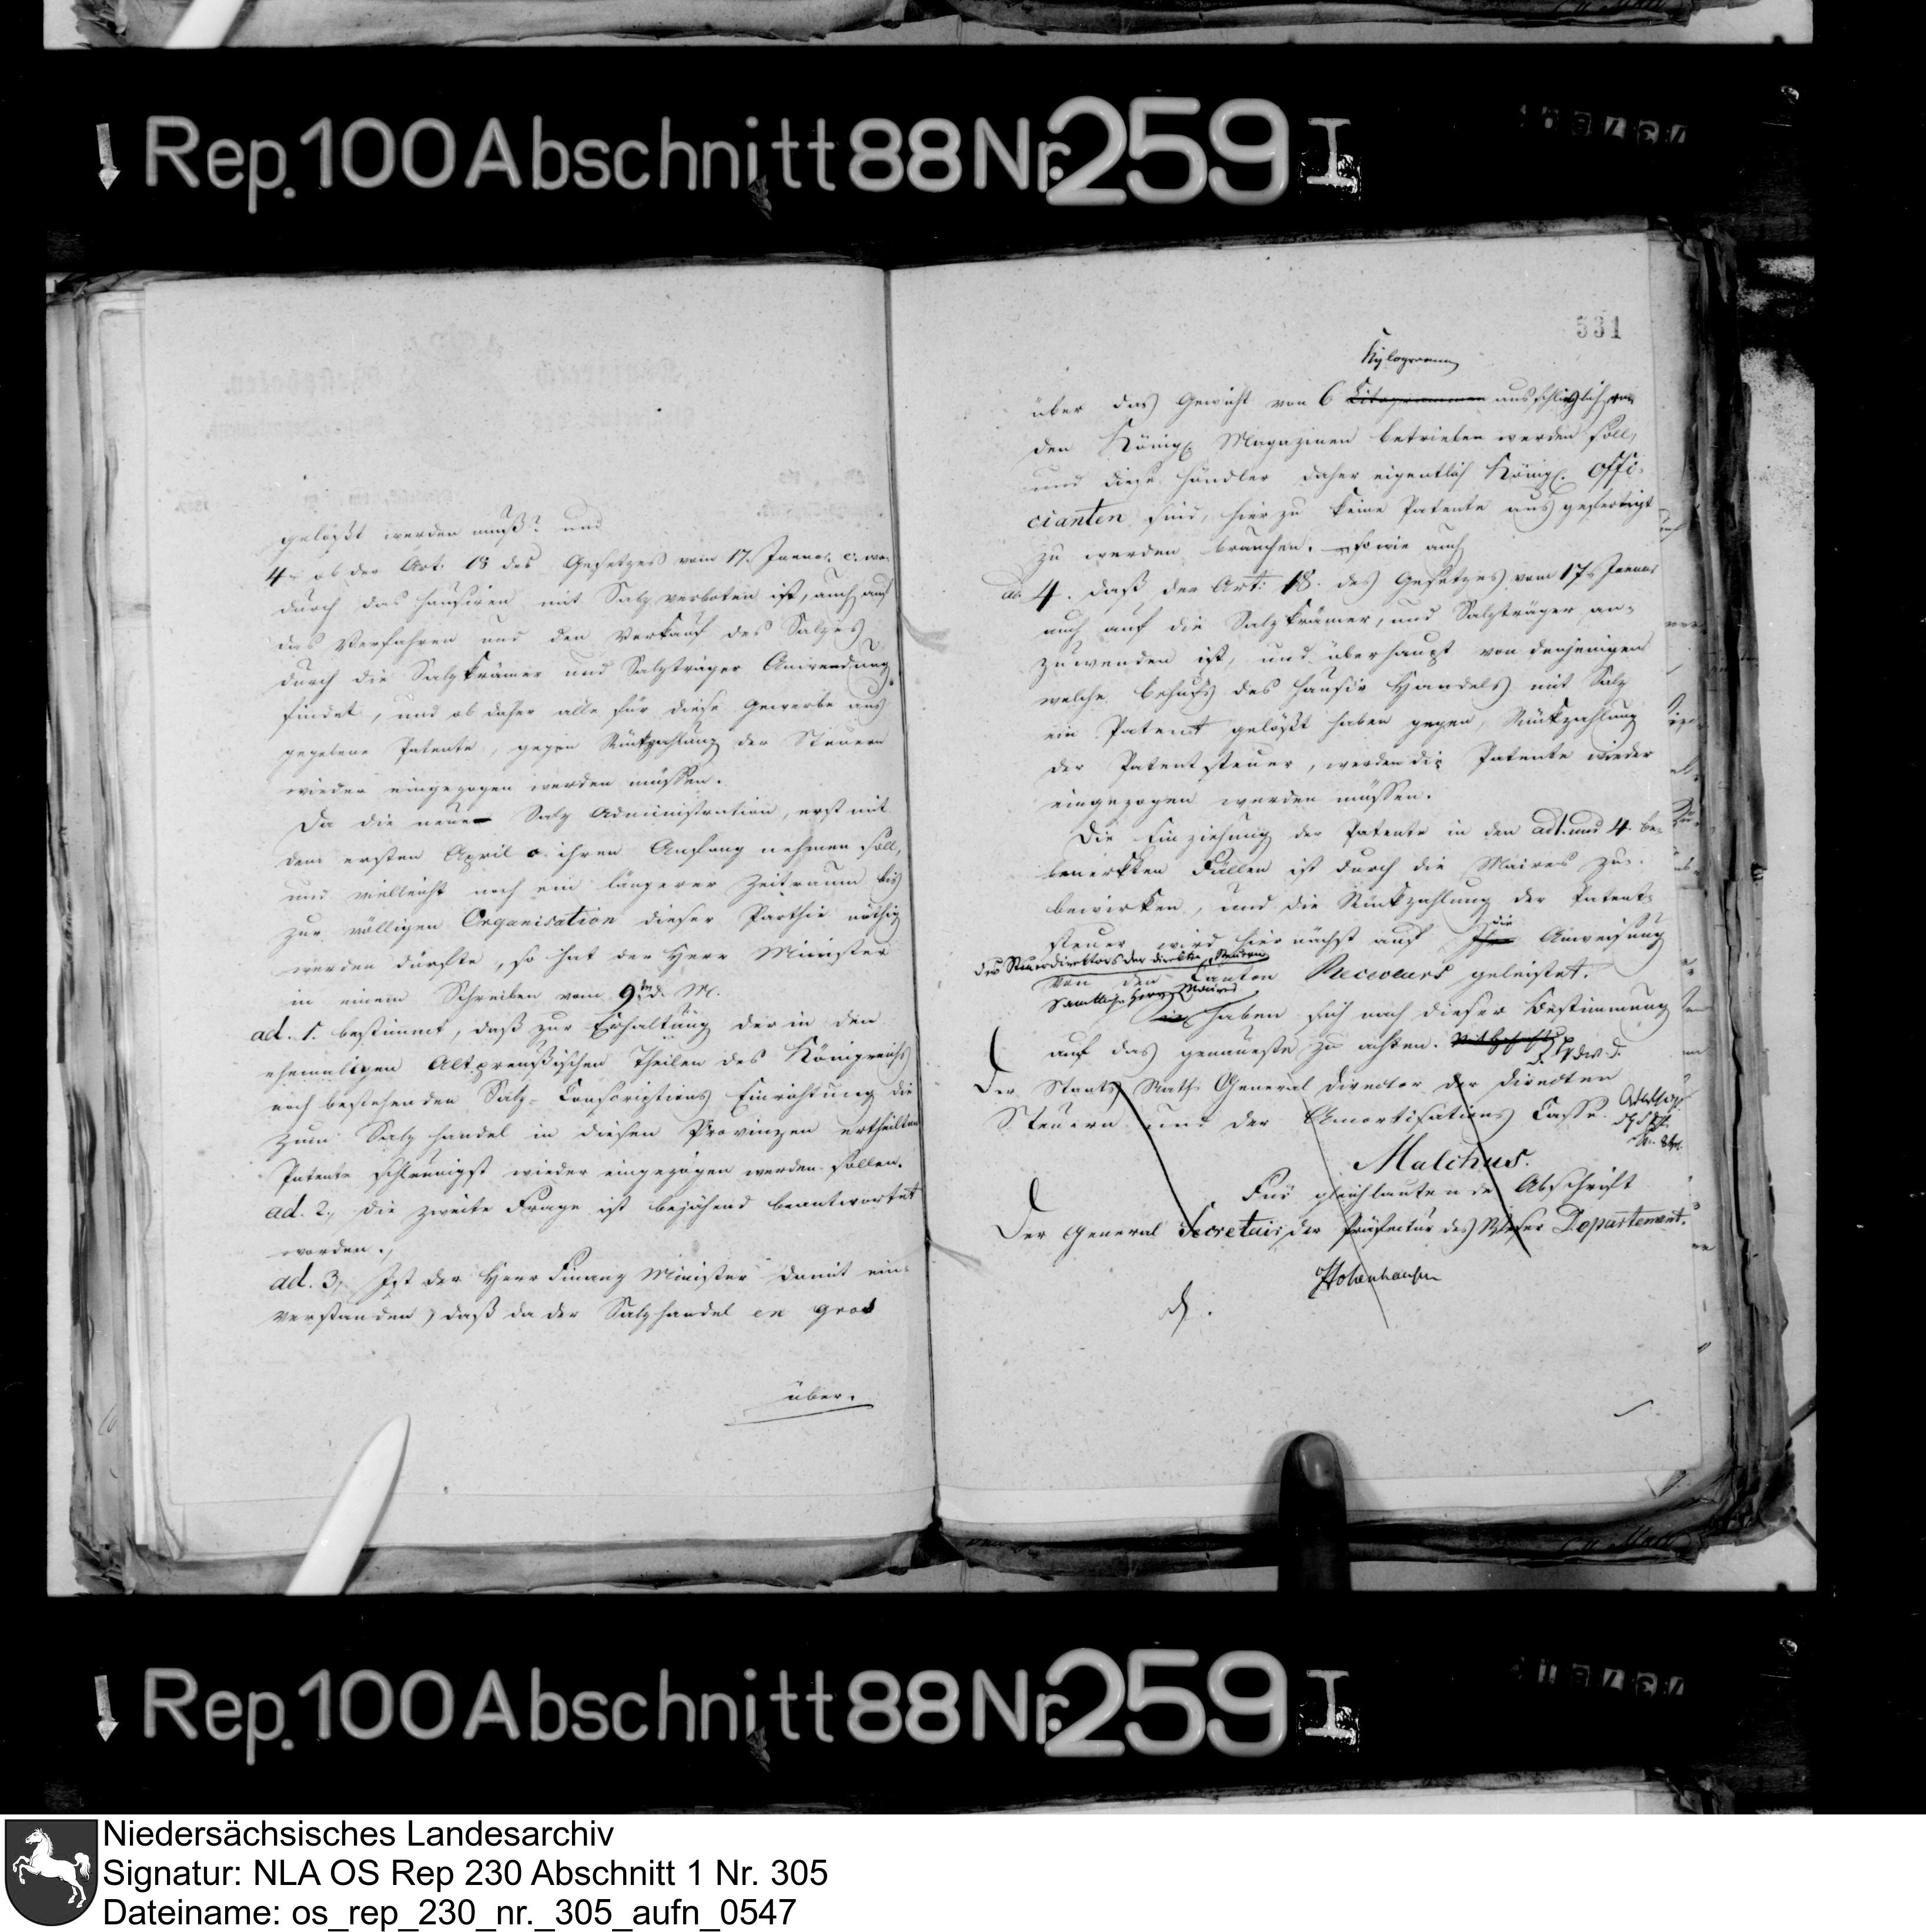 Rep. 100 Abschnitt 88 Nr. 259 I
gelößt werden muß? und
4. ob der Art: 18 des Gesetzes vom 17. Januar. c. wo-
durch das Hausiren mit Salz verboten ist, auch auf
das Verfahren und den Verkauf des Salzes
durch die Salzkrämer und Salzträger Anwendung
findet, und ob daher alle für diese Gewerbe aus
gegebene Patente, gegen Rückzahlung der Steuern
wieder eingezogen werden müssen.
Da die neue Salz Administration, erst mit
dem ersten April c. ihren Anfang nehmen soll,
und vielleicht noch ein längerer Zeitraum bis
zur völligen Organisation dieser Parthie nöthig
werden dürfte, so hat der Herr Minister
in einem Schreiben vom 9ten d. M.
ad. 1. bestimmt, daß zur Erhaltung der in den
ehemaligen Altpreußischen Theilen des Königreichs
noch bestehenden Salz-Conscriptions Einrichtung die
zum Salz handel in diesen Provinzen ertheilten
Patente schleunigst wieder eingezogen werden sollen.
ad. 2, die zweite Frage ist bejahend beantwortet
worden.,
ad. 3, Ist der Herr Finanz Minister damit ein-
verstanden, daß da der Salzhandel en gros
über.
531
Kylogramm
über das Gewicht von 6 ausschließlich von
den Königl. Magazinen betrieben werden soll,
und diese Händler daher eigentlich Königl. Offi-
cianten sind, hierzu keine Patente ausgefertigt
zu werden brauchen. sowie auch
ad. 4. daß der Art: 18. des Gesetzes vom 17. Januar
auch auf die Salzkrämer, und Salzträger an-
zuwenden ist, und überhaupt von denjenigen
welche behufs des Hausir Handels mit Salz
ein Patent gelößt haben gegen, Rückzahlung
der Patentsteuer, werden die Patente wieder
eingezogen werden müssen.
Die Einziehung der Patente in den ad 1. und 4. be-
bemerkten Fällen ist durch die Maires zu
bewirken, und die Rückzahlung der Patent-
steuer wird hiernächst auf die Anweisung
des Steuerdirektors der direkten Steuern
von den Canton Receveurs geleistet.
Sämtliche Herrn Maires
haben sich nach dieser Bestimmung
auf das genaueste zu achten.
Der Staats Rath General Director der directen
Steuern und der Amortisations Casse.
Malchus.
Für gleichlautende Abschrift
Der General Secretair der Präfectur des Weser Departement.
Hohenhausen
Rep. 100 Abschnitt 88 Nr. 259 I
Niedersächsisches Landesarchiv
Signatur: NLA OS Rep 230 Abschnitt 1 Nr. 305
Dateiname: os_rep_230_nr._305_aufn_0547